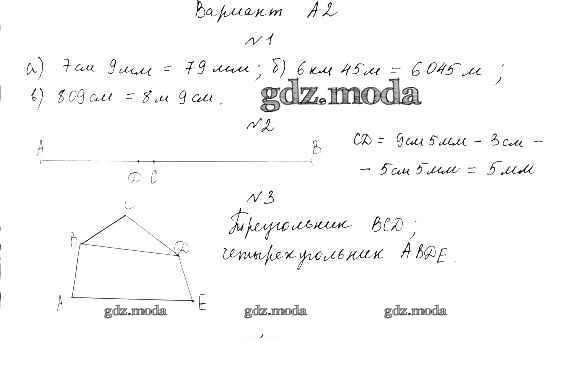 Вариант А2
№1
а) 7см 9мм = 79мм; б) 6км 45м = 6045м;
в) 809см = 8м 9см.
gdz.moda
№2
A B
D C
CD = 9см 5мм - 3см -
- 5см 5мм = 5мм
№3
Треугольник BCD;
четырехугольник ABDE.
C
B D
A E
gdz.moda gdz.moda gdz.moda